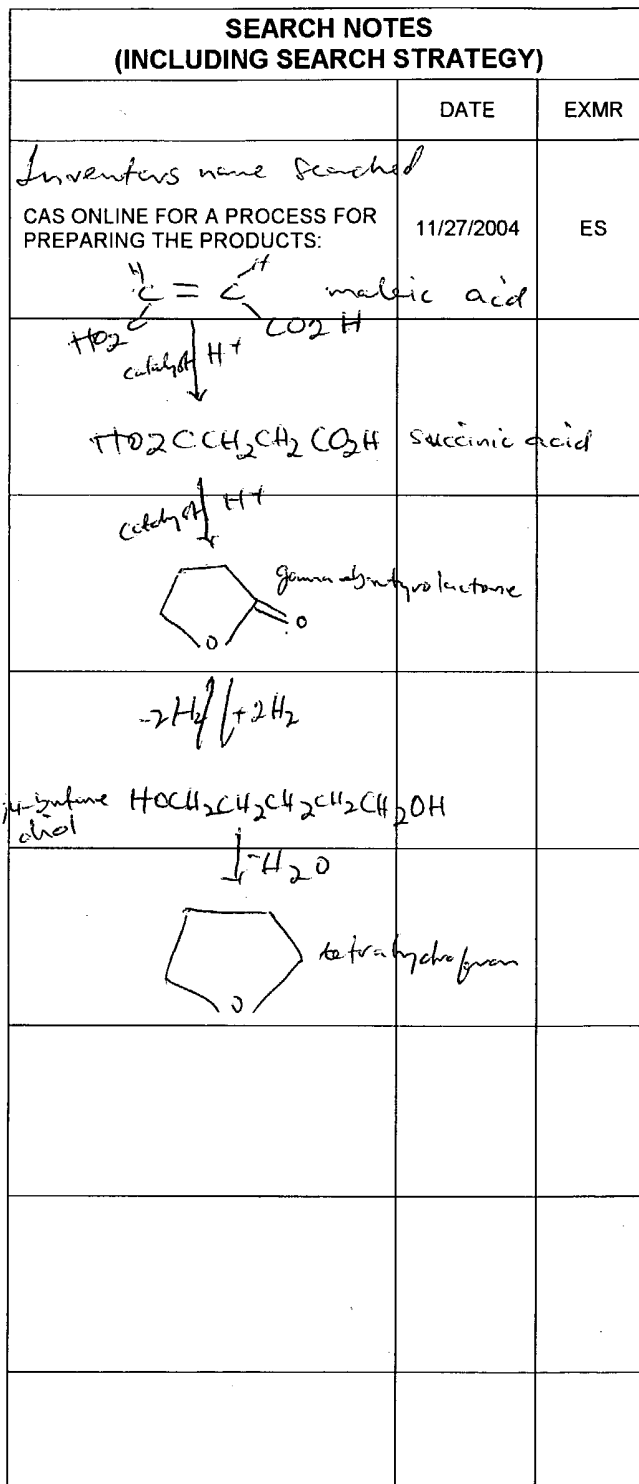 SEARCH NOTES
(INCLUDING SEARCH STRATEGY)
DATE EXMR
Inventors name searched
CAS ONLINE FOR A PROCESS FOR
PREPARING THE PRODUCTS:
11/27/2004 ES
H H
C = C maleic acid
HO2C CO2H
catalyst H+
HO2CCH2CH2CO2H succinic acid
catalyst H+
gamma-butyrolactone
O
O
-2H2 +2H2
1,4-butane HOCH2CH2CH2CH2CH2OH
diol
-H2O
tetrahydrofuran
O